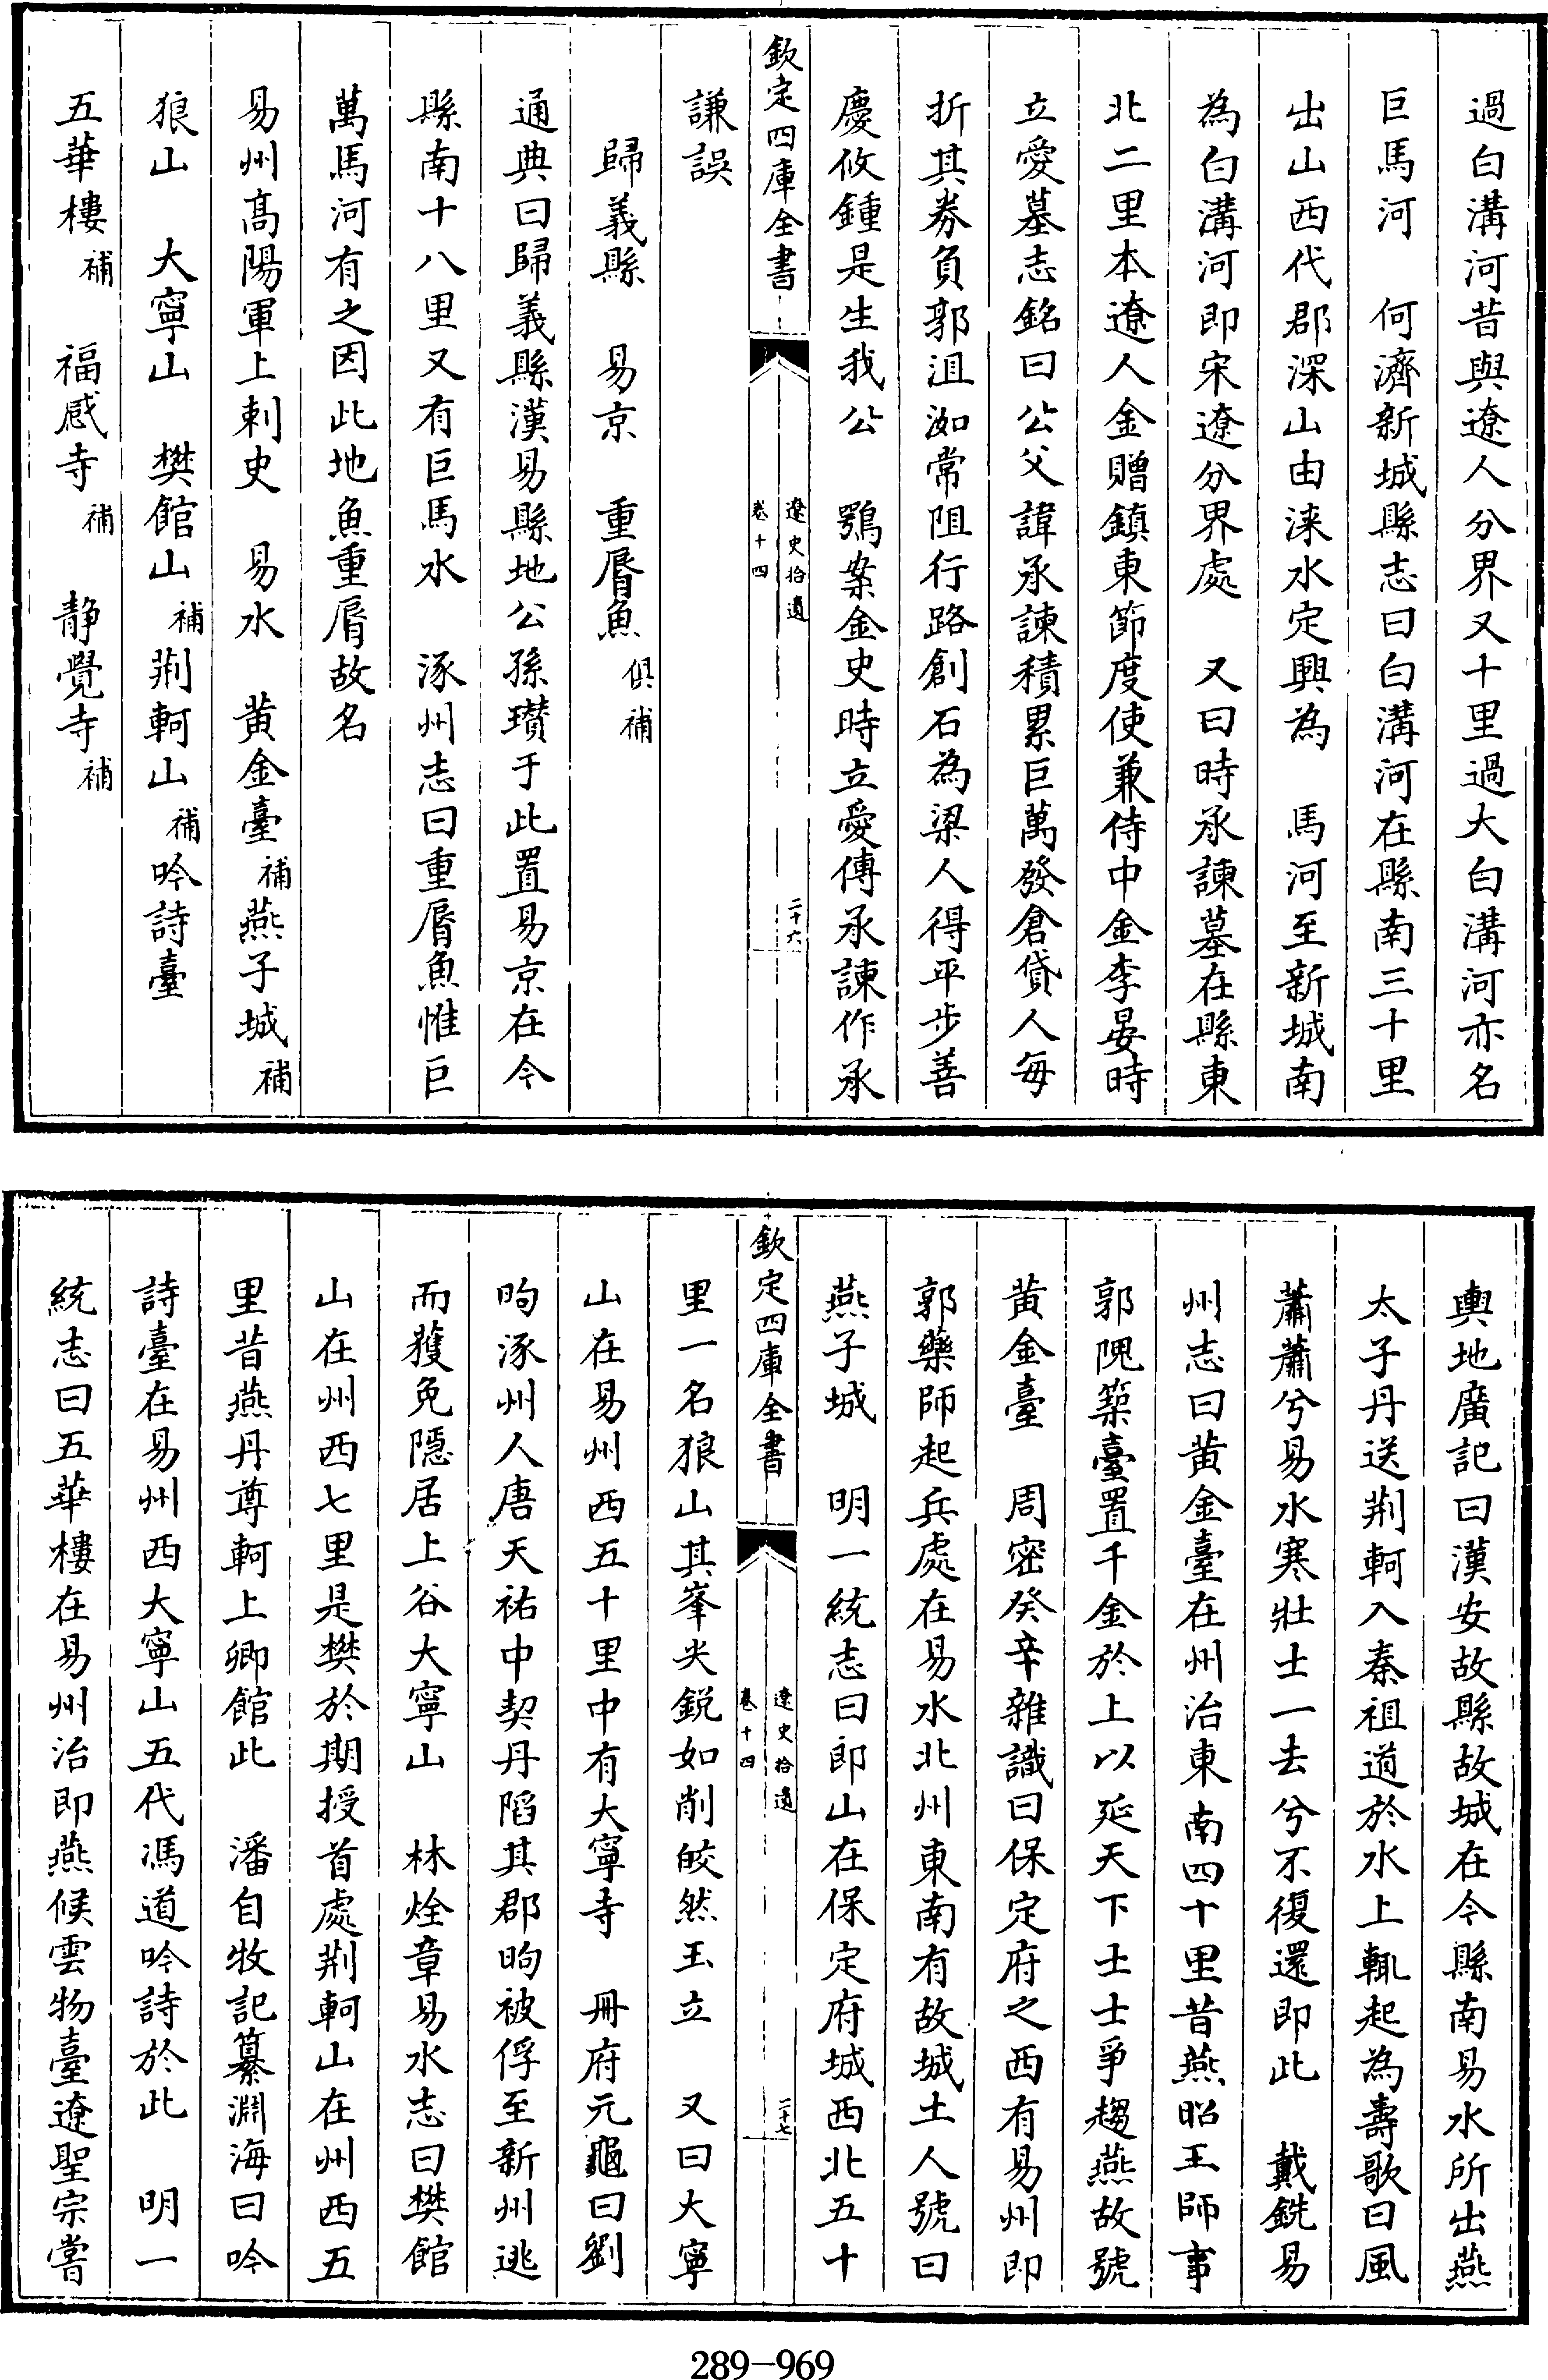 過白溝河昔與遼人分界又十里過大白溝河亦名
巨馬河　何濟新城縣志曰白溝河在縣南三十里
出山西代郡深山由淶水定興為　馬河至新城南
為白溝河即宋遼分界處　又曰時承諫墓在縣東
北二里本遼人金贈鎮東節度使兼侍中金李晏時
立愛墓志銘曰公父諱承諫積累巨萬發倉貸人每
折其劵負郭沮洳常阻行路創石為梁人得平步善
慶攸鍾是生我公　鶚案金史時立愛傳承諫作承
欽定四庫全書　遼史拾遺　卷十四　二十六
謙誤
歸義縣　易京　重脣魚俱補
通典曰歸義縣漢易縣地公孫瓚于此置易京在今
縣南十八里又有巨馬水　涿州志曰重脣魚惟巨
萬馬河有之因此地魚重脣故名
易州高陽軍上刺史　易水　黄金臺補燕子城補
狼山　大寧山　樊館山補荆軻山補吟詩臺
五華樓補　福感寺補　静覺寺補
輿地廣記曰漢安故縣故城在今縣南易水所出燕
太子丹送荆軻入秦祖道於水上輒起為壽歌曰風
蕭蕭兮易水寒壯士一去兮不復還即此　戴銑易
州志曰黄金臺在州治東南四十里昔燕昭王師事
郭隗築臺置千金於上以延天下士士爭趨燕故號
黄金臺　周密癸辛雜識曰保定府之西有易州即
郭藥師起兵處在易水北州東南有故城土人號曰
燕子城　明一統志曰郎山在保定府城西北五十
欽定四庫全書　遼史拾遺　卷十四　二十七
里一名狼山其峯尖鋭如削皎然玉立　又曰大寧
山在易州西五十里中有大寧寺　冊府元龜曰劉
昫涿州人唐天祐中契丹陷其郡昫被俘至新州逃
而獲免隠居上谷大寧山　林烇章易水志曰樊館
山在州西七里是樊於期授首處荆軻山在州西五
里昔燕丹尊軻上卿館此　潘自牧記纂淵海曰吟
詩臺在易州西大寧山五代馮道吟詩於此　明一
統志曰五華樓在易州治即燕候雲物臺遼聖宗嘗
289-969